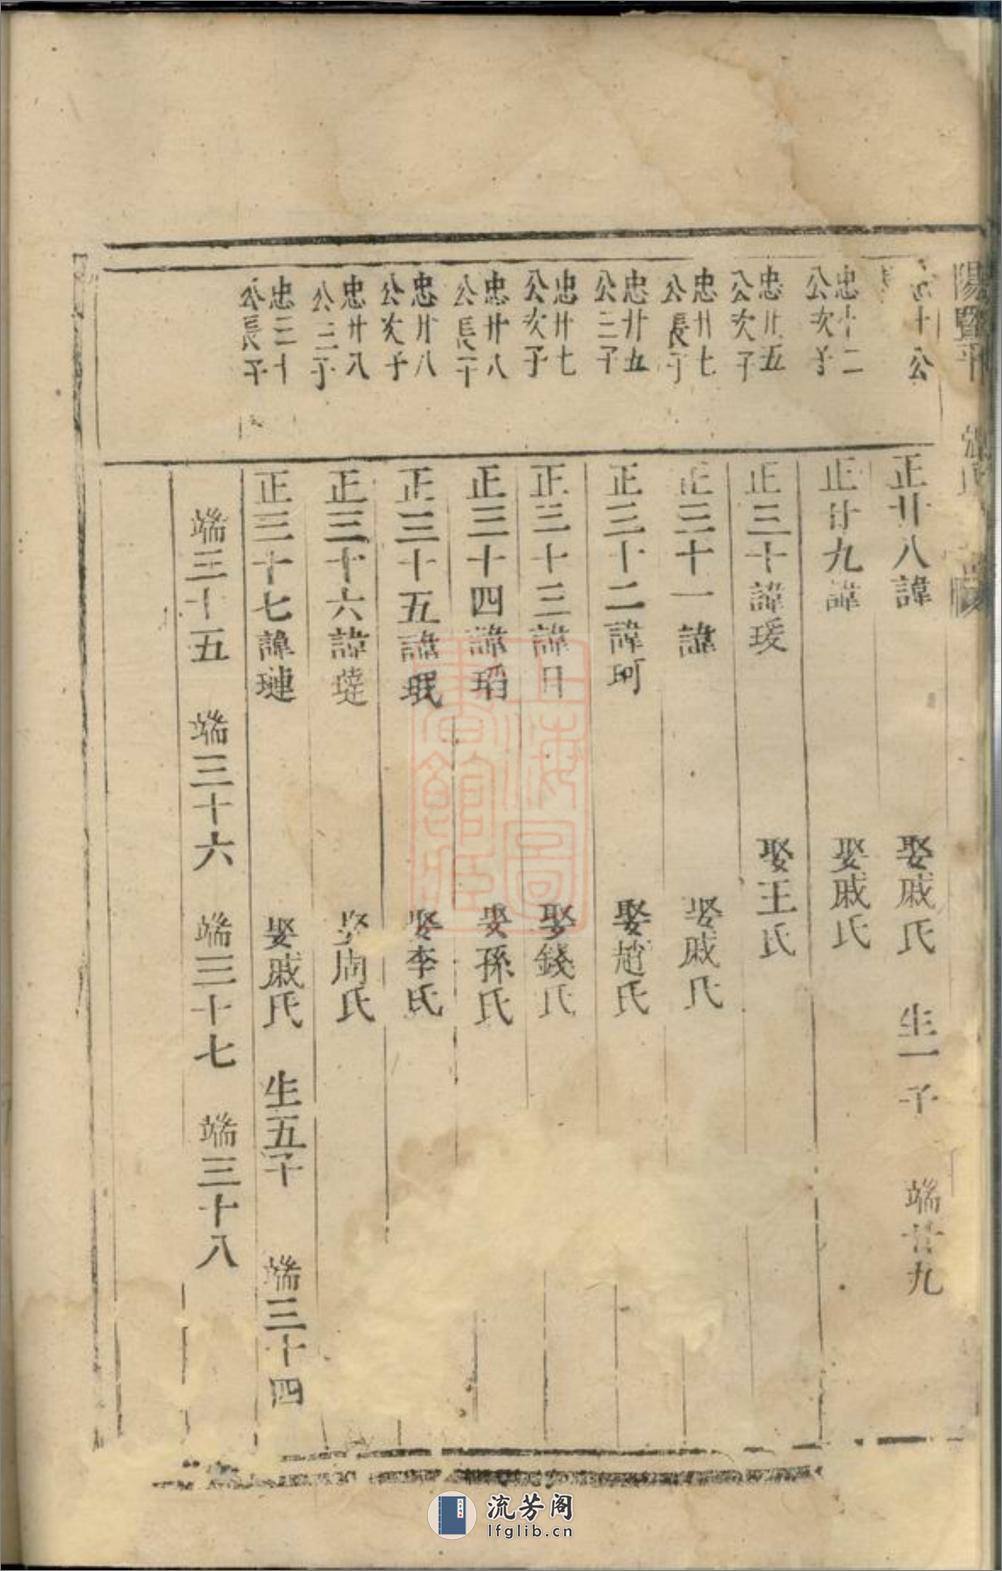 陽暨平
十公
正廿八諱
娶戚氏
生一子
端廿九
忠十二
公次子
正廿九諱
娶戚氏
忠廿五
公次子
正三十諱瑗
娶王氏
忠廿七
公長子
正三十一諱
娶戚氏
忠廿五
公三子
正三十二諱珂
娶趙氏
忠廿七
公次子
正三十三諱
娶錢氏
忠廿八
公長子
正三十四諱瑫
娶孫氏
忠廿八
公次子
正三十五諱珉
娶李氏
忠廿八
公三子
正三十六諱璉
娶周氏
忠三十
公長子
正三十七諱璉
娶戚氏
生五子
端三十四
端三十五
端三十六
端三十七
端三十八
上海圖書館藏
流芳阁
lfglib.cn